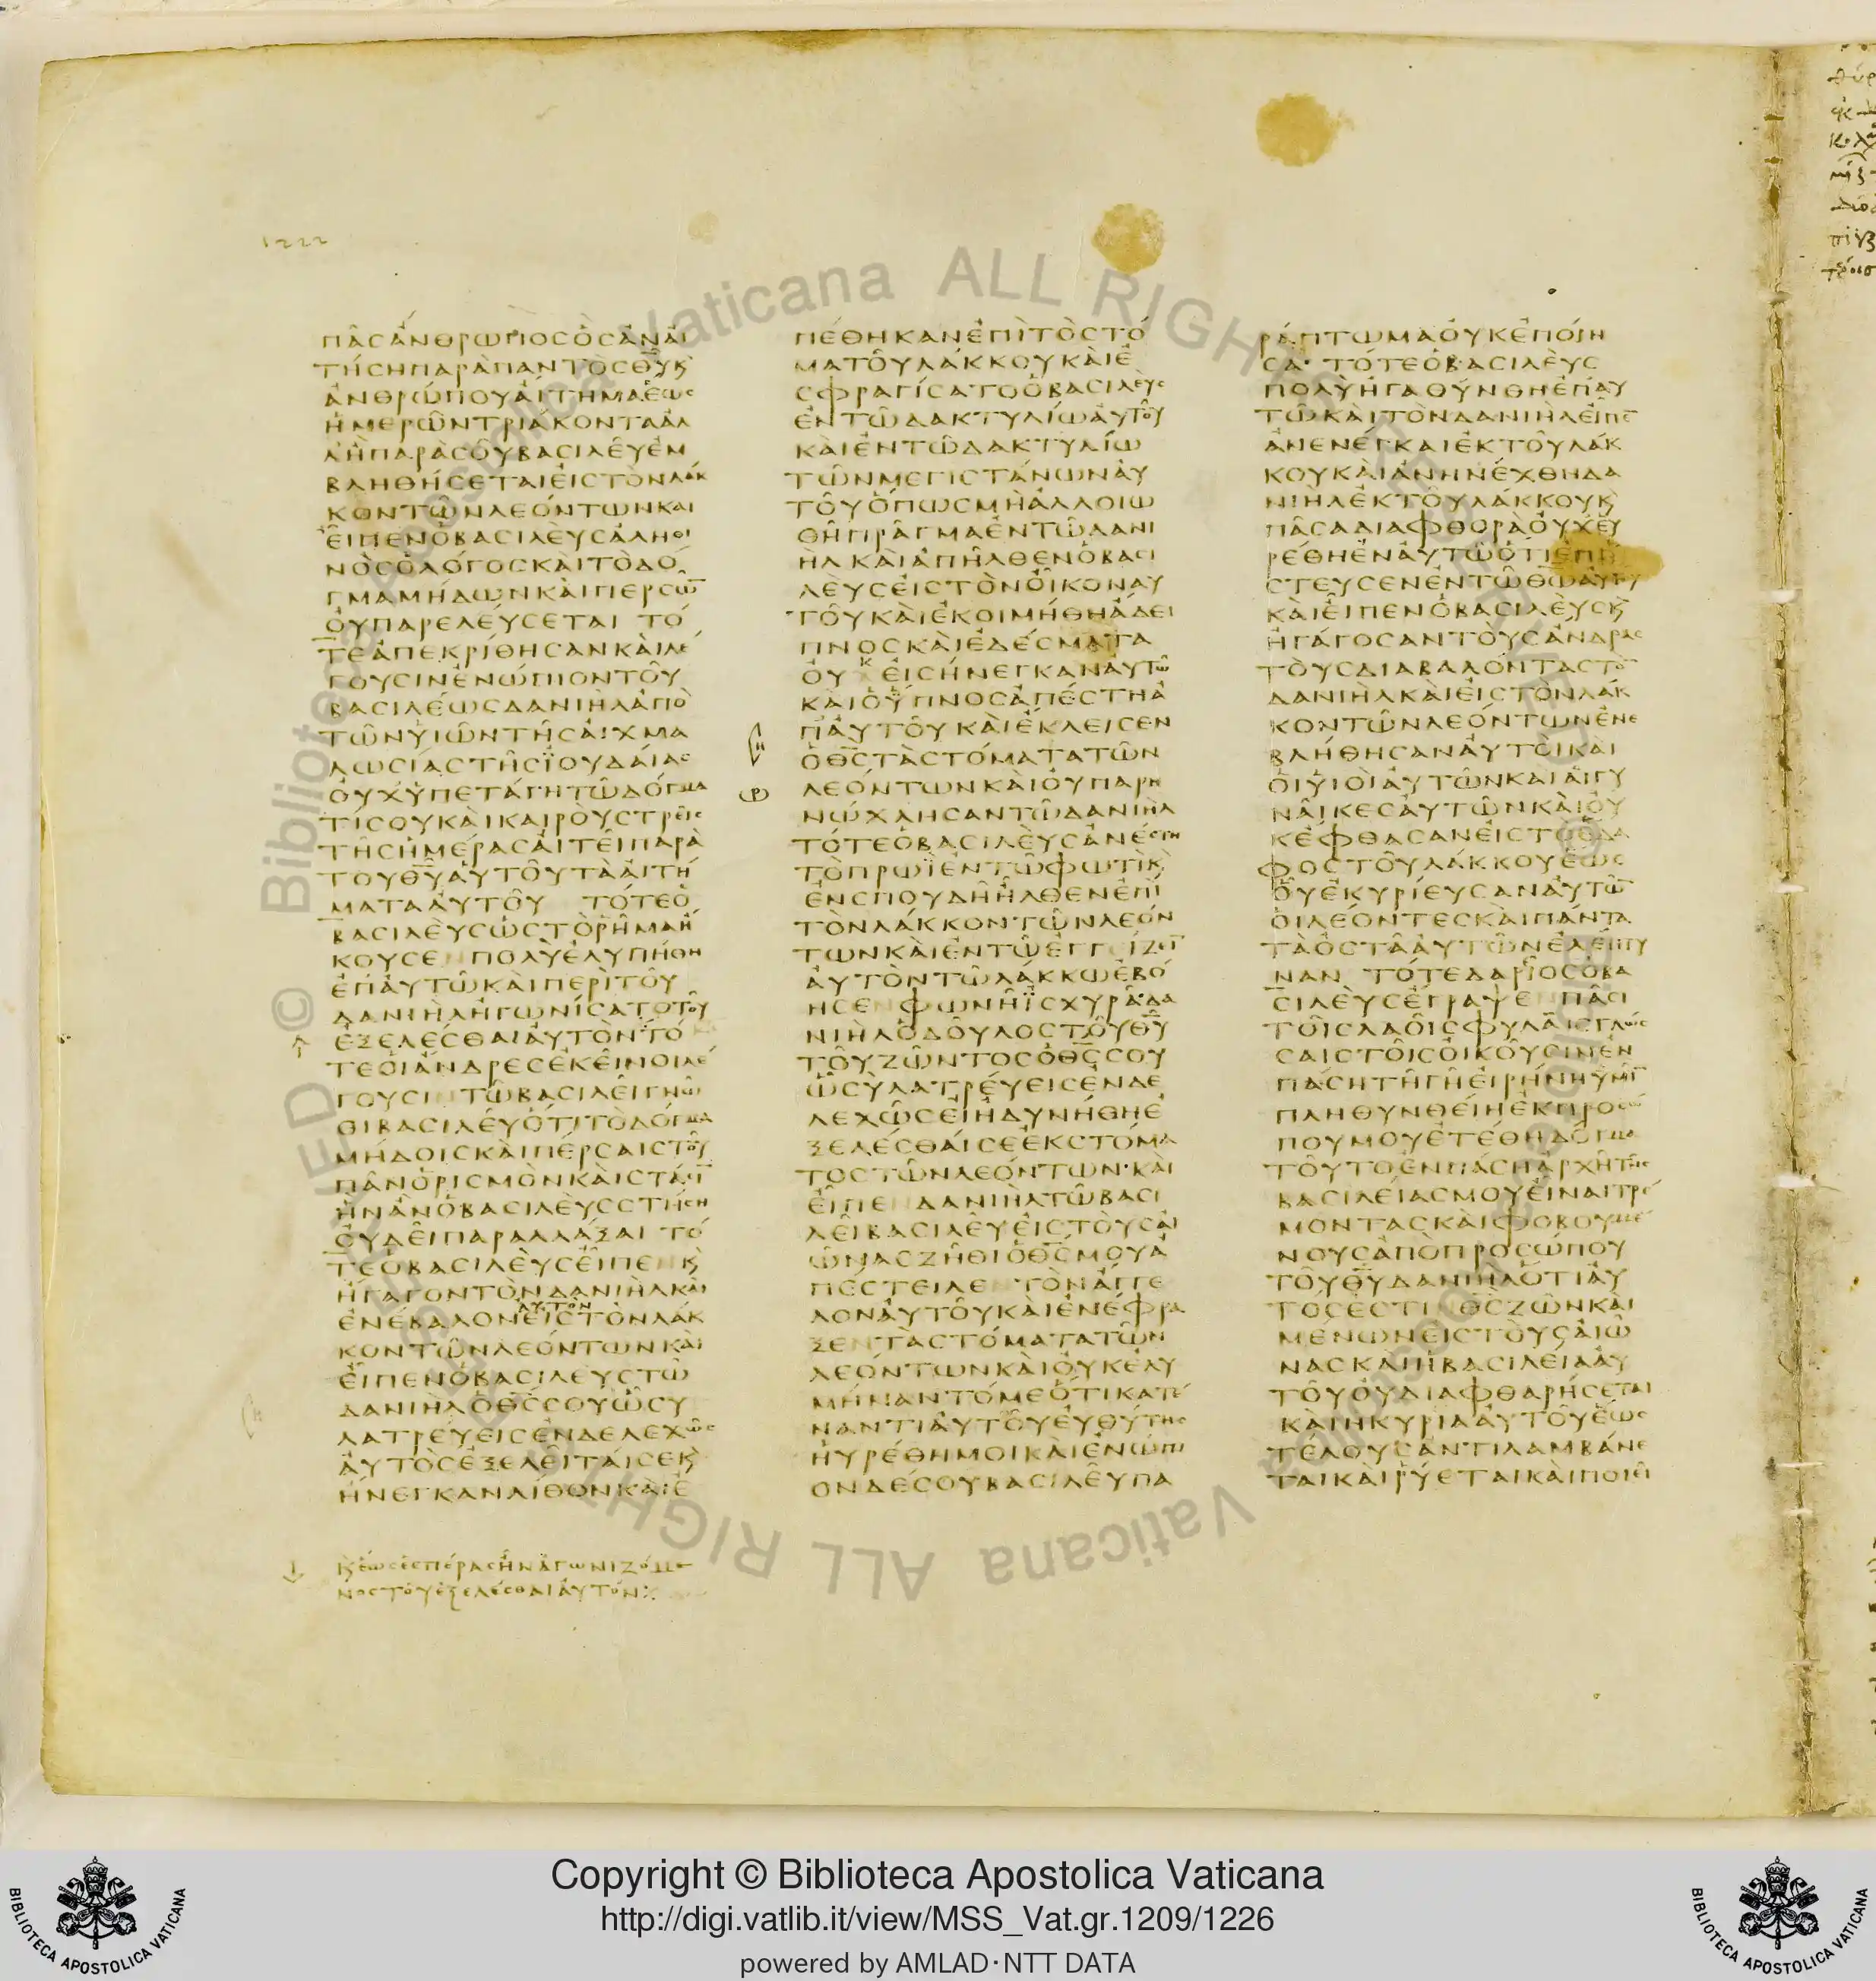 1222
ΠΑΣΑΝΘΡΩΠΟΣΟΣΑΝΑΙ
ΤΗΣΗΠΑΡΑΠΑΝΤΟΣΘΥΚ
ΑΝΘΡΩΠΟΥΑΙΤΗΜΑΕΩΣ
ΗΜΕΡΩΝΤΡΙΑΚΟΝΤΑΑΛ
ΛΗΠΑΡΑΣΟΥΒΑΣΙΛΕΥΕΜ
ΒΛΗΘΗΣΕΤΑΙΕΙΣΤΟΝΛΑΚ
ΚΟΝΤΩΝΛΕΟΝΤΩΝΚΑΙ
ΕΙΠΕΝΟΒΑΣΙΛΕΥΣΑΛΗΘΙ
ΝΟΣΟΛΟΓΟΣΚΑΙΤΟΔΟ
ΓΜΑΜΗΔΩΝΚΑΙΠΕΡΣΩ̅
ΟΥΠΑΡΕΛΕΥΣΕΤΑΙ ΤΟ
ΤΕΑΠΕΚΡΙΘΗΣΑΝΚΑΙΛΕ
ΓΟΥΣΙΝΕΝΩΠΙΟΝΤΟΥ
ΒΑΣΙΛΕΩΣΔΑΝΙΗΛΑΠΟ
ΤΩΝΥΙΩΝΤΗΣΑΙΧΜΑ
ΛΩΣΙΑΣΤΗΣΙΟΥΔΑΙΑΣ
ΟΥΧΥΠΕΤΑΓΗΤΩΔΟΓΜΑ
ΤΙΣΟΥΚΑΙΚΑΙΡΟΥΣΤΡΕΙΣ
ΤΗΣΗΜΕΡΑΣΑΙΤΕΙΠΑΡΑ
ΤΟΥΘΥΑΥΤΟΥΤΑΑΙΤΗ
ΜΑΤΑΑΥΤΟΥ ΤΟΤΕΟ
ΒΑΣΙΛΕΥΣΩΣΤΟΡΗΜΑΗ
ΚΟΥΣΕΝ ΠΟΛΥΕΛΥΠΗΘΗ
ΕΠΑΥΤΩΚΑΙΠΕΡΙΤΟΥ
ΔΑΝΙΗΛΗΓΩΝΙΣΑΤΟΤΟΥ
ΕΞΕΛΕΣΘΑΙΑΥΤΟΝ ΤΟ
ΤΕΟΙΑΝΔΡΕΣΕΚΕΙΝΟΙΛΕ
ΓΟΥΣΙΝΤΩΒΑΣΙΛΕΙΓΝΩ
ΘΙΒΑΣΙΛΕΥΟΤΙΤΟΔΟΓΜΑ
ΜΗΔΟΙΣΚΑΙΠΕΡΣΑΙΣΤΟΥ
ΠΑΝΟΡΙΣΜΟΝΚΑΙΣΤΑΣΙ̅
ΗΝΑΝΟΒΑΣΙΛΕΥΣΣΤΗΣΗ
ΟΥΔΕΙΠΑΡΑΛΛΑΞΑΙ ΤΟ
ΤΕΟΒΑΣΙΛΕΥΣΕΙΠΕΝΚ
ΗΓΑΓΟΝΤΟΝΔΑΝΙΗΛΚΑΙ
ΑΥΤΟΝ
ΕΝΕΒΑΛΟΝΕΙΣΤΟΝΛΑΚ
ΚΟΝΤΩΝΛΕΟΝΤΩΝΚΑΙ
ΕΙΠΕΝΟΒΑΣΙΛΕΥΣΤΩ
ΔΑΝΙΗΛΟΘΣΣΟΥΩΣΥ
ΛΑΤΡΕΥΕΙΣΕΝΔΕΛΕΧΩΣ
ΑΥΤΟΣΕΞΕΛΕΙΤΑΙΣΕΚ
ΗΝΕΓΚΑΝΛΙΘΟΝΚΑΙΕ
Κ ἕως ἑσπέρας ἦν ἀγωνιζόμε
νος τοῦ ἐξελέσθαι αὐτόν:
ΠΕΘΗΚΑΝΕΠΙΤΟΣΤΟ
ΜΑΤΟΥΛΑΚΚΟΥΚΑΙΕ
ΣΦΡΑΓΙΣΑΤΟΟΒΑΣΙΛΕΥΣ
ΕΝΤΩΔΑΚΤΥΛΙΩΑΥΤΟΥ
ΚΑΙΕΝΤΩΔΑΚΤΥΛΙΩ
ΤΩΝΜΕΓΙΣΤΑΝΩΝΑΥ
ΤΟΥΟΠΩΣΜΗΑΛΛΟΙΩ
ΘΗΠΡΑΓΜΑΕΝΤΩΔΑΝΙ
ΗΛΚΑΙΑΠΗΛΘΕΝΟΒΑΣΙ
ΛΕΥΣΕΙΣΤΟΝΟΙΚΟΝΑΥ
ΤΟΥΚΑΙΕΚΟΙΜΗΘΗΑΔΕΙ
ΠΝΟΣΚΑΙΕΔΕΣΜΑΤΑ
ΟΥΚΕΙΣΗΝΕΓΚΑΝΑΥΤΩ
ΚΑΙΟΥΠΝΟΣΑΠΕΣΤΗΑ
ΠΑΥΤΟΥΚΑΙΕΚΛΕΙΣΕΝ
ΟΘΣΤΑΣΤΟΜΑΤΑΤΩΝ
ΛΕΟΝΤΩΝΚΑΙΟΥΠΑΡΗ
ΝΩΧΛΗΣΑΝΤΩΔΑΝΙΗΛ
ΤΟΤΕΟΒΑΣΙΛΕΥΣΑΝΕΣΤΗ
ΤΟΠΡΩΙΕΝΤΩΦΩΤΙΚ
ΕΝΣΠΟΥΔΗΗΛΘΕΝΕΠΙ
ΤΟΝΛΑΚΚΟΝΤΩΝΛΕΟΝ
ΤΩΝΚΑΙΕΝΤΩΕΓΓΙΖΙ̅
ΑΥΤΟΝΤΩΛΑΚΚΩΕΒΟ
ΗΣΕΝΦΩΝΗΙΣΧΥΡΑΔΑ
ΝΙΗΛΟΔΟΥΛΟΣΤΟΥΘΥ
ΤΟΥΖΩΝΤΟΣΟΘΣΣΟΥ
ΩΣΥΛΑΤΡΕΥΕΙΣΕΝΔΕ
ΛΕΧΩΣΕΙΗΔΥΝΗΘΗΕ
ΞΕΛΕΣΘΑΙΣΕΕΚΣΤΟΜΑ
ΤΟΣΤΩΝΛΕΟΝΤΩΝ·ΚΑΙ
ΕΙΠΕΝΔΑΝΙΗΛΤΩΒΑΣΙ
ΛΕΙΒΑΣΙΛΕΥΕΙΣΤΟΥΣΑΙ
ΩΝΑΣΖΗΘΙΟΘΣΜΟΥΑ
ΠΕΣΤΕΙΛΕΝΤΟΝΑΓΓΕ
ΛΟΝΑΥΤΟΥΚΑΙΕΝΕΦΡΑ
ΞΕΝΤΑΣΤΟΜΑΤΑΤΩΝ
ΛΕΟΝΤΩΝΚΑΙΟΥΚΕΛΥ
ΜΗΝΑΝΤΟΜΕΟΤΙΚΑΤΕ
ΝΑΝΤΙΑΥΤΟΥΕΥΘΥΤΗΣ
ΗΥΡΕΘΗΜΟΙΚΑΙΕΝΩΠΙ
ΟΝΔΕΣΟΥΒΑΣΙΛΕΥΠΑ
ΡΑΠΤΩΜΑΟΥΚΕΠΟΙΗ
ΣΑ· ΤΟΤΕΟΒΑΣΙΛΕΥΣ
ΠΟΛΥΗΓΑΘΥΝΘΗΕΠΑΥ
ΤΩΚΑΙΤΟΝΔΑΝΙΗΛΕΙΠΕ̅
ΑΝΕΝΕΓΚΑΙΕΚΤΟΥΛΑΚ
ΚΟΥΚΑΙΑΝΗΝΕΧΘΗΔΑ
ΝΙΗΛΕΚΤΟΥΛΑΚΚΟΥΚ
ΠΑΣΑΔΙΑΦΘΟΡΑΟΥΧΕΥ
ΡΕΘΗΕΝΑΥΤΩΟΤΙΕΠΙ
ΣΤΕΥΣΕΝΕΝΤΩΘΩΑΥΤΟΥ
ΚΑΙΕΙΠΕΝΟΒΑΣΙΛΕΥΣΚ
ΗΓΑΓΟΣΑΝΤΟΥΣΑΝΔΡΑΣ
ΤΟΥΣΔΙΑΒΑΛΟΝΤΑΣΤΟ̅
ΔΑΝΙΗΛΚΑΙΕΙΣΤΟΝΛΑΚ
ΚΟΝΤΩΝΛΕΟΝΤΩΝΕΝΕ
ΒΛΗΘΗΣΑΝΑΥΤΟΙΚΑΙ
ΟΙΥΙΟΙΑΥΤΩΝΚΑΙΑΙΓΥ
ΝΑΙΚΕΣΑΥΤΩΝΚΑΙΟΥ
ΚΕΦΘΑΣΑΝΕΙΣΤΟΕΔΑ
ΦΟΣΤΟΥΛΑΚΚΟΥΕΩΣ
ΟΥΕΚΥΡΙΕΥΣΑΝΑΥΤΩ̅
ΟΙΛΕΟΝΤΕΣΚΑΙΠΑΝΤΑ
ΤΑΟΣΤΑΑΥΤΩΝΕΛΕΠΤΥ
ΝΑΝ ΤΟΤΕΔΑΡΙΟΣΟΒΑ
ΣΙΛΕΥΣΕΓΡΑΨΕΝΠΑΣΙ
ΤΟΙΣΛΑΟΙΣΦΥΛΑΙΣΓΛΩΣ
ΣΑΙΣΤΟΙΣΟΙΚΟΥΣΙΝΕΝ
ΠΑΣΗΤΗΓΗΕΙΡΗΝΗΥΜΙ̅
ΠΛΗΘΥΝΘΕΙΗΕΚΠΡΟΣΩ
ΠΟΥΜΟΥΕΤΕΘΗΔΟΓΜΑ
ΤΟΥΤΟΕΝΠΑΣΗΑΡΧΗΤΗΣ
ΒΑΣΙΛΕΙΑΣΜΟΥΕΙΝΑΙΤΡΕ
ΜΟΝΤΑΣΚΑΙΦΟΒΟΥΜΕ
ΝΟΥΣΑΠΟΠΡΟΣΩΠΟΥ
ΤΟΥΘΥΔΑΝΙΗΛΟΤΙΑΥ
ΤΟΣΕΣΤΙΝΘΣΖΩΝΚΑΙ
ΜΕΝΩΝΕΙΣΤΟΥΣΑΙΩ
ΝΑΣΚΑΙΗΒΑΣΙΛΕΙΑΑΥ
ΤΟΥΟΥΔΙΑΦΘΑΡΗΣΕΤΑΙ
ΚΑΙΗΚΥΡΙΑΑΥΤΟΥΕΩΣ
ΤΕΛΟΥΣΑΝΤΙΛΑΜΒΑΝΕ
ΤΑΙΚΑΙΡΥΕΤΑΙΚΑΙΠΟΙΕΙ
Copyright © Biblioteca Apostolica Vaticana
http://digi.vatlib.it/view/MSS_Vat.gr.1209/1226
powered by AMLAD·NTT DATA
BIBLIOTECA APOSTOLICA VATICANA
BIBLIOTECA APOSTOLICA VATICANA